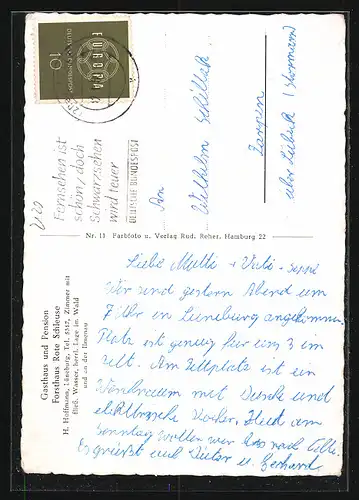 EUROPA
DEUTSCHE BUNDESPOST
10
Fernsehen ist
schön, doch
schwarzsehen
wird teuer
DEUTSCHE BUNDESPOST
An
Wilhelm
Zarpen
über Lübeck (Stormarn)
Nr. 11 Farbfoto u. Verlag Rud. Reher, Hamburg 22
Gasthaus und Pension
Forsthaus Rote Schleuse
H. Hoffmann, Lüneburg, Tel. 5357, Zimmer mit
fließ. Wasser, herrl. Lage im Wald
und an der Ilmenau
Liebe Mutti + Vati
Wir sind gestern Abend um
7 Uhr in Lüneburg angekommen.
Platz ist genug für uns 3 im
Zelt. Am Zeltplatz ist ein
Waschraum mit Dusche und
elektrische Kocher. Heut am
Sonntag wollen wir bis nach Celle.
Es grüßt euch Dieter u. Gerhard